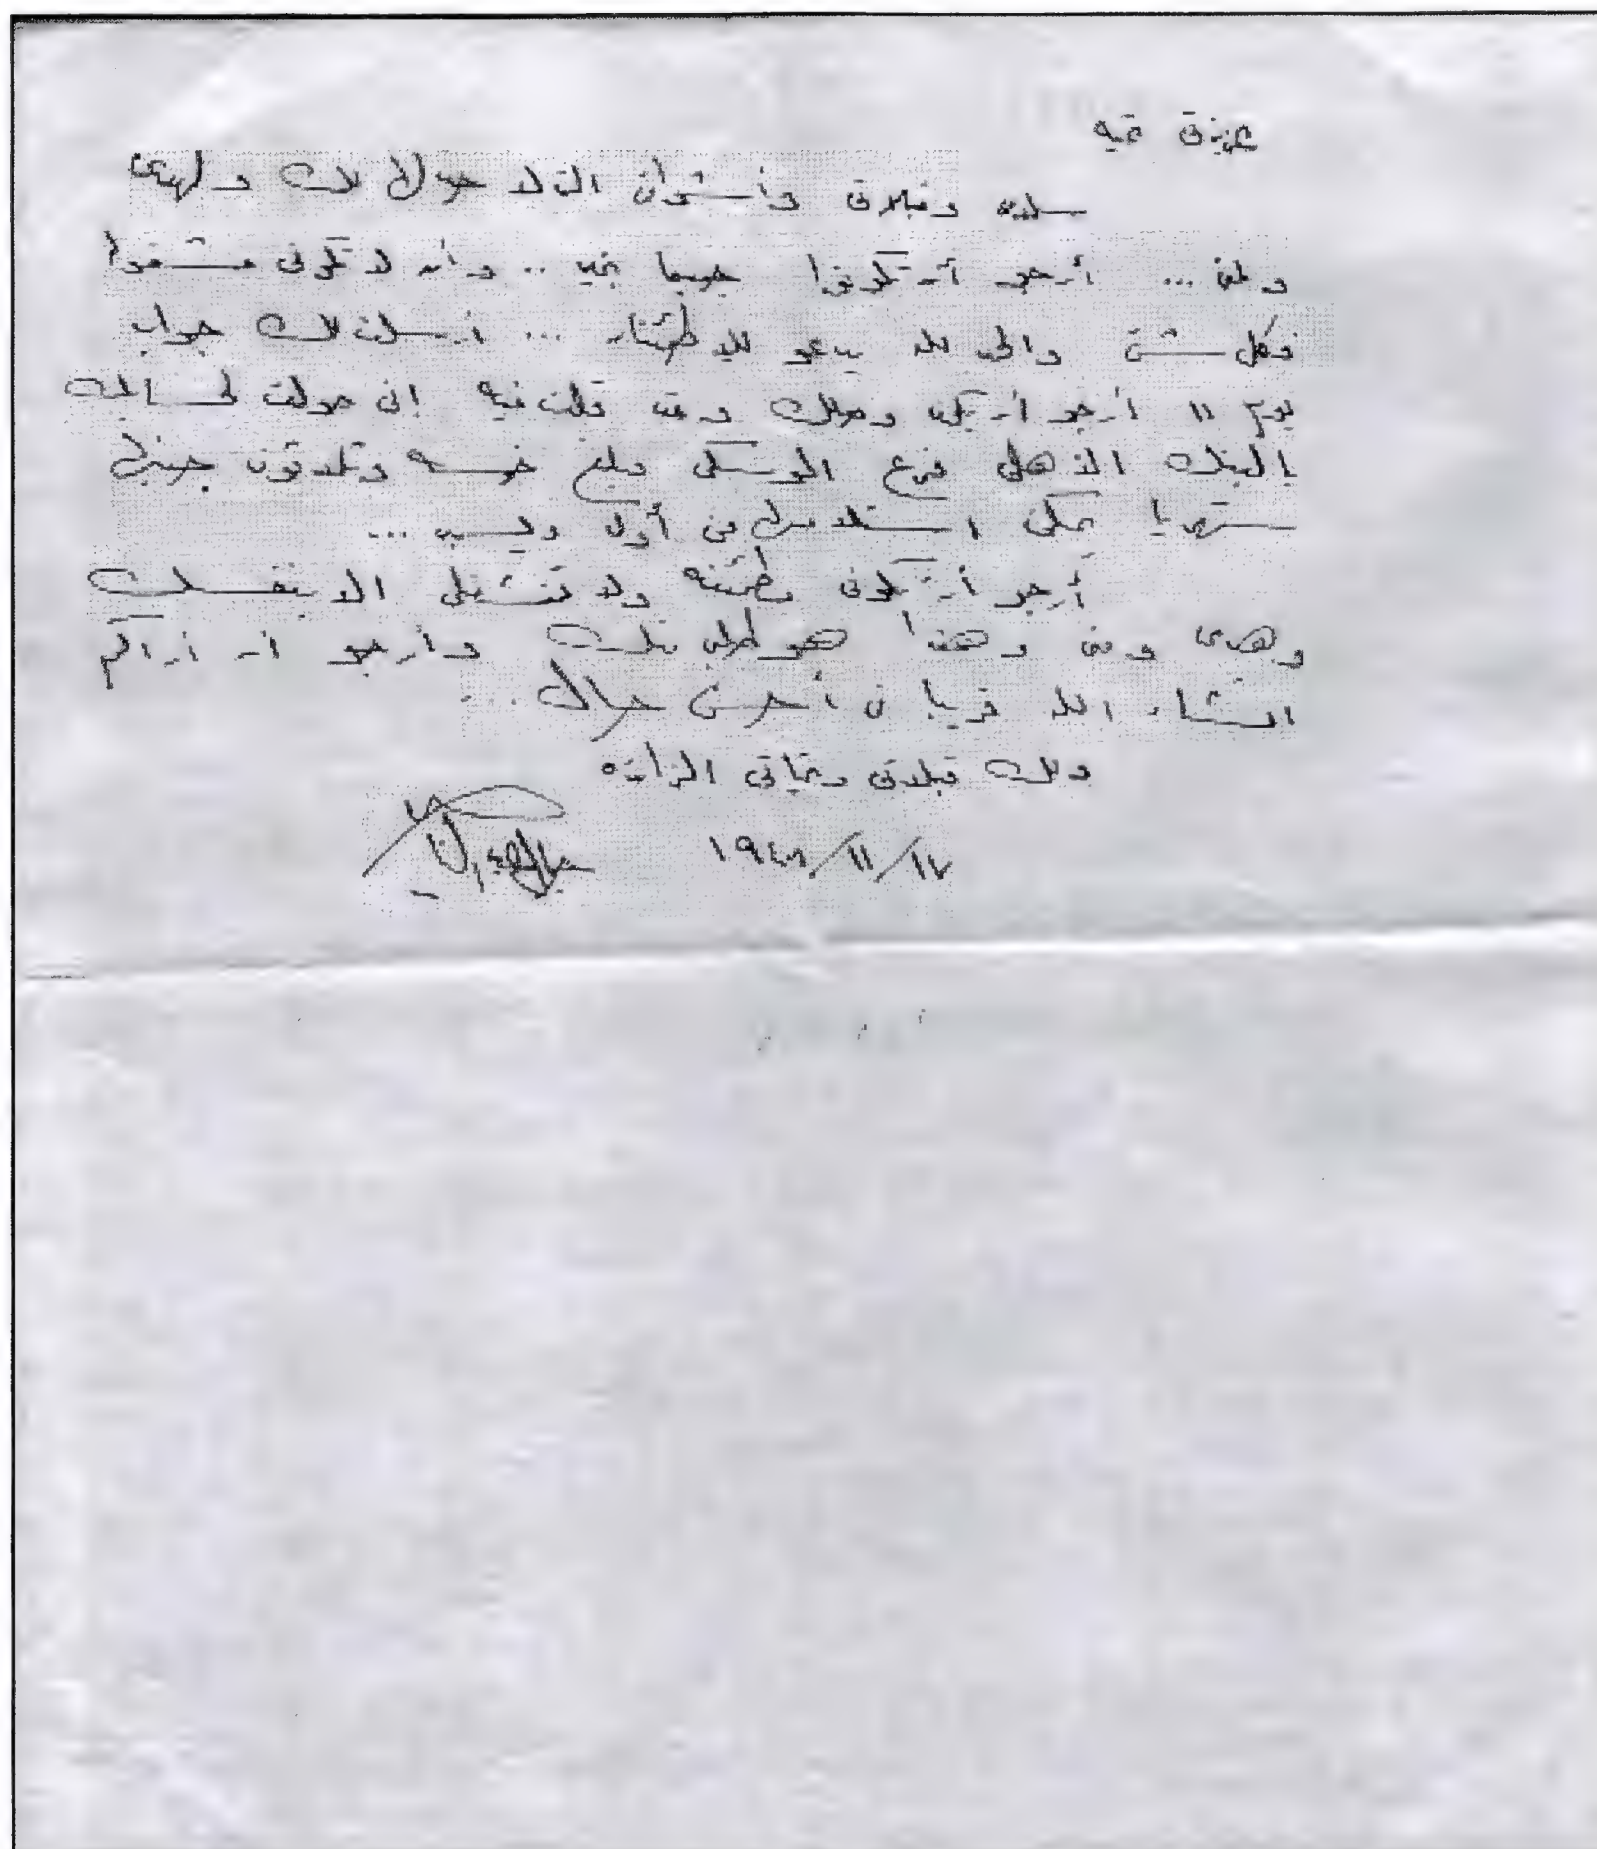 عزيزتى تحيه
سلامى وقبلاتى وأشواقى التى لا حد لها لك ولهدى
ولمنى ... أرجو أن تكونوا جميعا بخير .. وأن لا تكونى مشغولة
فكل شئ والحمد لله يدعو للاطمئنان ... أرسلت لك جواب
يوم ١١ أرجو أن يكون وصلك وقد قلت فيه إنى حولت لحسابك
بالبنك الأهلى فرع الموسكى مبلغ خمسه وثلاثون جنيها
شهريا يمكن استلامها من أول ديسمبر ...
أرجو أن تكونى مطمئنه ولا تنشغلى الا بنفسك
وهدى ومنى وهذا هو طلبى منك وأرجو أن أراكم
انشاء الله قريبا فى أحسن حال ...
ولك قبلاتى وتحياتى الزائده
١٩٤٨/١١/١٧